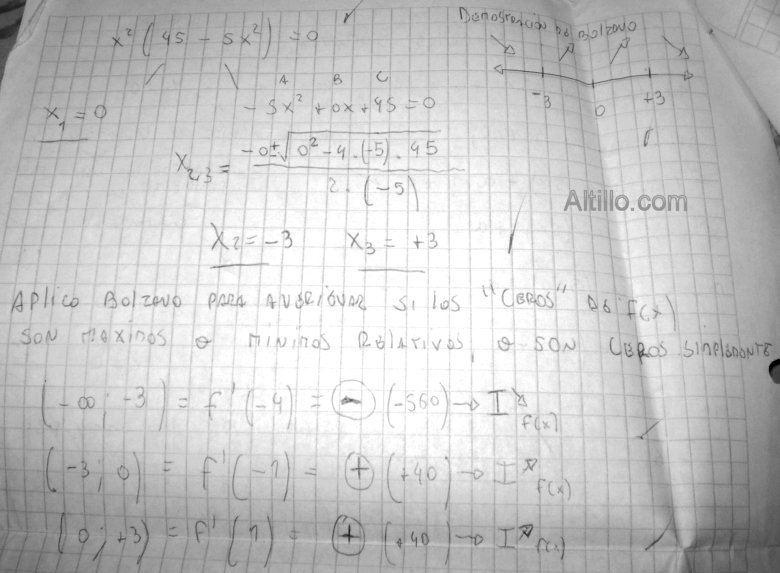 x²(45 - 5x²) = 0
Demostración de Bolzano
-3 0 +3
x₁ = 0
A B C
-5x² + 0x + 45 = 0
x₂,₃ = -0±√0² - 4.(-5).45
2.(-5)
Altillo.com
x₂ = -3 x₃ = +3
APLICO BOLZANO PARA AVERIGUAR SI LOS "CEROS" DE f(x)
SON MAXIMOS O MINIMOS RELATIVOS, O SON CEROS SIMPLEMENTE
(-∞; -3) = f'(-4) = ⊖ (-560) → I↘ f(x)
(-3; 0) = f'(-1) = ⊕ (+40) → I↗ f(x)
(0; +3) = f'(1) = ⊕ (+40) → I↗ f(x)